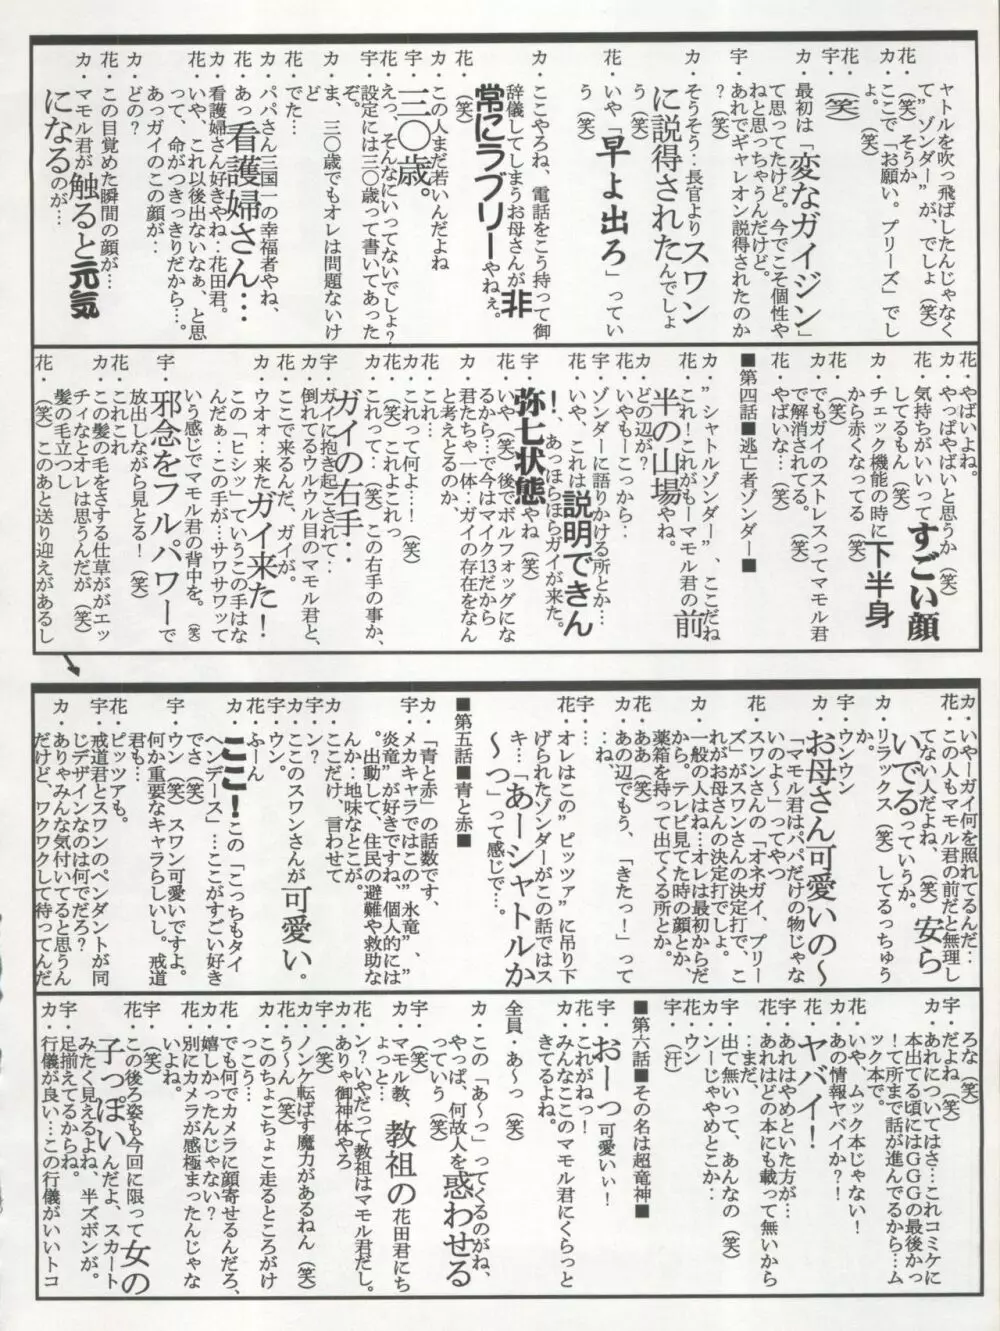 ャトルを吹っ飛ばしたんじゃなく
て”ゾンダー”が、でしょ（笑）
花・（笑）そうか
カ・ここで「お願い。プリーズ」でし
ょ。（笑）
花・（笑）
宇・（笑）
カ・最初は「変なガイジン」
て思ってたけど、今でこそ個性や
ねと思っちゃうんだけど。
宇・あれでギャレオン説得されたのか
？（笑）
カ・そうそう‥長官よりスワン
に説得されたんでしょ
う（笑）
花・いや「早よ出ろ」ってい
う（笑）
カ・ここやろね、電話をこう持って御
辞儀してしまうお母さんが非
常にラブリーやねぇ。
花・（笑）
カ・この人まだ若いんだよね
宇・三〇歳。
花・えっ、そんなにいってないでしょ？
宇・設定には三〇歳って書いてあった
ぞ。
カ・ま、三〇歳でもオレは問題ないけ
ど
花・でた…
カ・パパさん三国一の幸福者やね、
花・あっ看護婦さん…
カ・看護婦さん好きやね‥花田君。
花・いや、これ以後出ないなぁ、と思
って、命がつきっきりだから…。
あっガイのこの顔が‥
カ・どの？
花・この目覚めた瞬間の顔が…
カ・マモル君が触ると元気
になるのが…
花・やばいよね。
カ・やっぱやばいと思うか（笑）
花・気持ちがいいってすごい顔
してるもん（笑）
カ・チェック機能の時に下半身
から赤くなってる（笑）
花・（笑）
カ・でもガイのストレスってマモル君
で解消されてる。（笑）
花・やばいな…（笑）
■第四話■逃亡者ゾンダー■
カ・”シャトルゾンダー”、ここだね
花・これ！これがもーマモル君の前
半の山場やね。
カ・どの辺が？
花・いやもーこっから‥
宇・ゾンダーに語りかける所とか…
花・いや、これは説明できん
！、あっほらほらガイが来た。
宇・弥七状態やね（笑）
花・いや（笑）後でボルフォッグにな
るから…で今はマイク13だから
カ・君たちゃ一体‥ガイの存在をなん
と考えとるのか、
花・これ…
カ・これって何よ…！（笑）
花・（笑）これよこれっ
カ・これって‥（笑）この右手の事か、
ガイの右手‥
宇・ガイに抱き起こされて‥
カ・倒れてるウルウル目のマモル君と、
花・ここで来るんだ、ガイが。
カ・ウオォ‥来たガイ来た！
この「ヒシッ」ていうこの手はな
んだぁ‥この手が…サワサワッて
いう感じでマモル君の背中を。（笑）
宇・邪念をフルパワーで
放出しながら見とる！（笑）
花・これこれ
カ・この髪の毛をさする仕草ががエッ
チィなとオレは思うんだが（笑）
髪の毛立つし
花・（笑）このあと送り迎えがあるし
カ・いやーガイ何を照れてるんだ‥
花・この人もマモル君の前だと無理し
てない人だよね、（笑）安ら
いでるっていうか。
カ・リラックス（笑）してるっちゅう
か。
宇・ウンウン
カ・お母さん可愛いの〜
「マモル君はパパだけの物じゃな
いのよ〜」ってやつ
花・スワンさんの「オネガイ、プリー
ズ」がスワンさんの決定打で、こ
れがお母さんの決定打でしょ。
カ・一般の人はね…オレは最初からだ
から、テレビ見てた時の顔とか、
薬箱を持って出てくる所とか。
花・ああ（笑）
カ・あの辺でもう、「きたっ！」って
‥ね。
宇・
花・オレはこの”ピッツァ”に吊り下
げられたゾンダーがこの話ではス
キ…「あーシャトルか
〜つ」って感じで…。
■第五話■青と赤■
カ・「青と赤」の話数です、
宇・メカキャラではこの”氷竜”、”
炎竜”が好きですね、個人的には
。出動して、住民の避難や救助な
んか‥地味なとこが。
カ・ここだけ、言わせて
宇・ン？
カ・ここのスワンさんが可愛い。
宇・ウン。
花・ふーん
カ・ここ！この「こっちもタイ
ヘンデース」…ここがすごい好き
でさ（笑）
宇・ウン（笑）スワン可愛いですよ。
カ・何か重要なキャラらしいし。戒道
君も…
花・ピッツアも。
宇・戒道君とスワンのペンダントが同
じデザインなのは何でだろ？
カ・ありゃみんな気付いてると思うん
だけど、ワクワクして待ってんだ
ろな（笑）
宇・だよね（笑）
カ・あれについてはさ…これコミケに
本出てる頃にはＧＧＧの最後かっ
！て所まで話が進んでるから…ム
ック本で。
花・いや、ムック本じゃない！
カ・あの情報ヤバイか？！
花・ヤバイ！
宇・あれはやめといた方が…
花・あれはどの本にも載って無いから
‥まだ、
宇・出て無いって、あんなの（笑）
カ・ンーじゃやめとこか‥
花・ウン
宇・（汗）
■第六話■その名は超竜神■
宇・おーっ可愛いぃ！
花・これがねっ！
カ・みんなここのマモル君にくらっと
きてるよね。
全員・あ〜っ（笑）
カ・この「あ〜っ」ってくるのがね、
やっぱ、何故人を惑わせる
っていう（笑）
宇・（笑）
カ・マモル教、教祖の花田君にち
ょっと…
花・ン？いやだって教祖はマモル君だし。
カ・ありゃ御神体やろ
宇・（笑）
カ・ノンケ転ばす魔力があるねん
花・う〜ん（笑）
カ・このちょこちょこ走るところがけ
っこう…
花・でも何でカメラに顔寄せるんだろ、
カ・嬉しかったんじゃない？
花・別にカメラが感極まったんじゃな
いよね。
宇・（笑）
花・この後ろ姿も今回に限って女の
子っぽいんだよ、スカート
みたく見えるよね、半ズボンが。
宇・足揃えてるからね。
カ・行儀が良い…この行儀がいいトコ